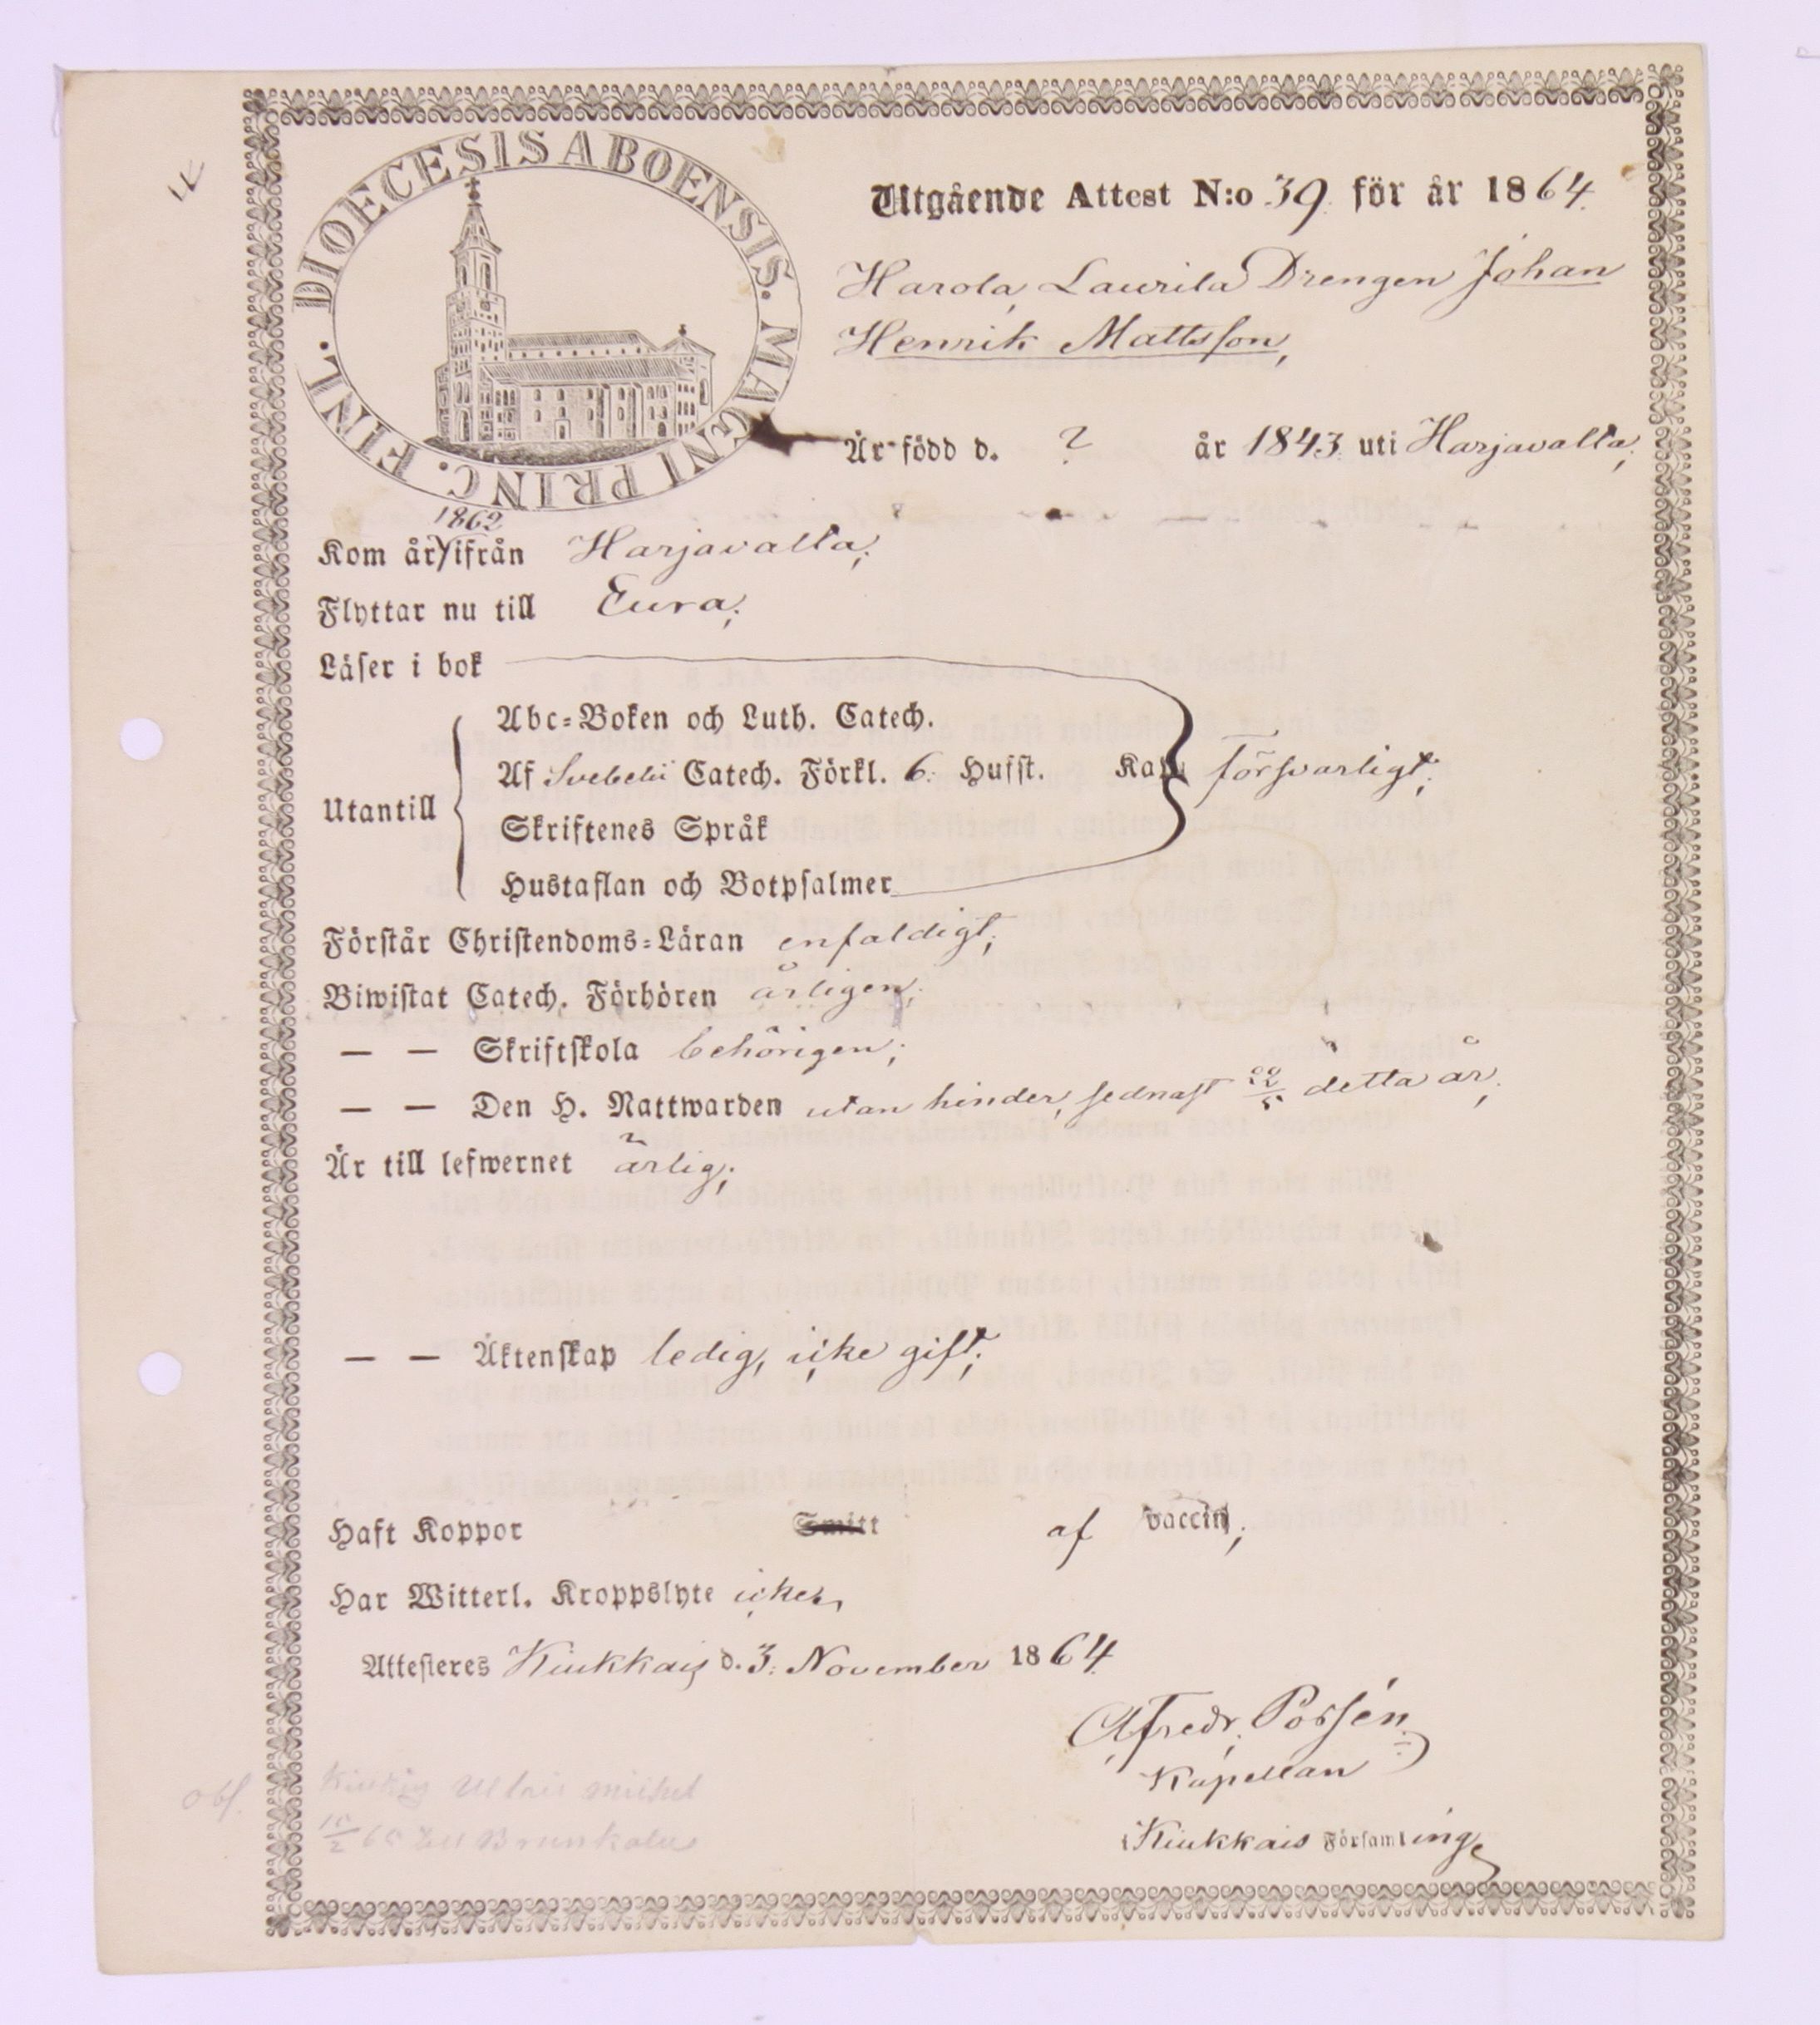 DIOECESIS ABOENSIS. MAGNI PRINC. FINL.
Utgående Attest N:o 39. för år 1864.
Harola Laurila Drengen Johan
Henrik Mattsson,
Är född d. ? år 1843. uti Harjavalta;
1862
Kom år ifrån Harjavalta;
Flyttar nu till Eura;
Läser i bok
Abc-Boken och Luth. Catech.
Af Svebelii Catech. Förkl. 6. Hufst. Kan försvarligt;
Utantill
Skriftenes Språk
Hustaflan och Botpsalmer
Förstår Christendoms-Läran enfaldigt;
Biwistat Catech. Förhören årligen;
— — Skriftskola behörigen;
— — Den H. Nattwarden utan hinder, sednast 22/5 detta år;
Är till lefwernet ärlig;
— — Äktenskap ledig, icke gift;
Haft Koppor Smitt af vaccin;
Har Witterl. Kroppslyte icke,
Attesteres Kiukkais d. 3. November 1864.
A. Fredr. Possén
Kapellan
i Kiukkais Församling
obs.
15/2 65 till